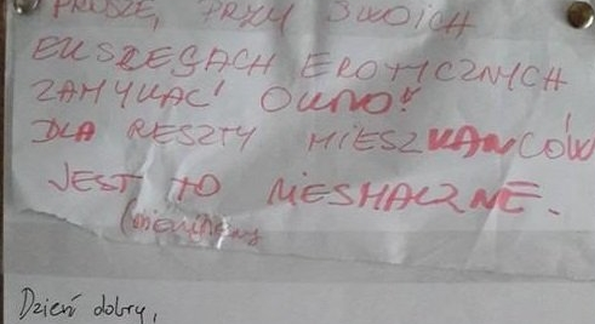 PROSZĘ, PRZY SWOICH
EKSCESACH EROTYCZNYCH
ZAMYKAĆ OKNO!
DLA RESZTY MIESZKAŃCÓW
JEST TO NIESMACZNE.
Dzień dobry,